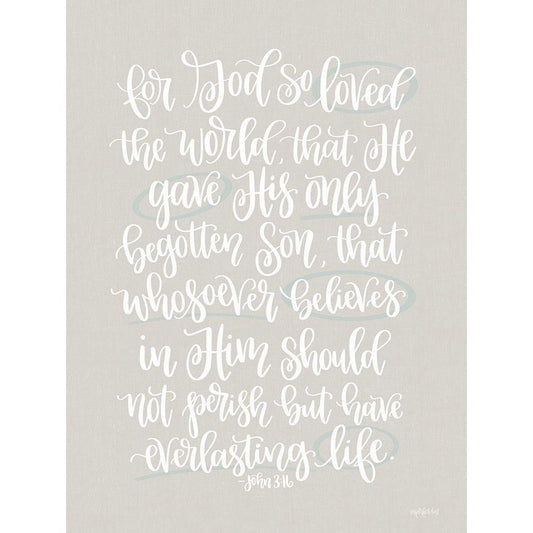 for God so loved
the world, that He
gave His only
begotten Son, that
whosoever believes
in Him should
not perish but have
everlasting life.
-John 3:16